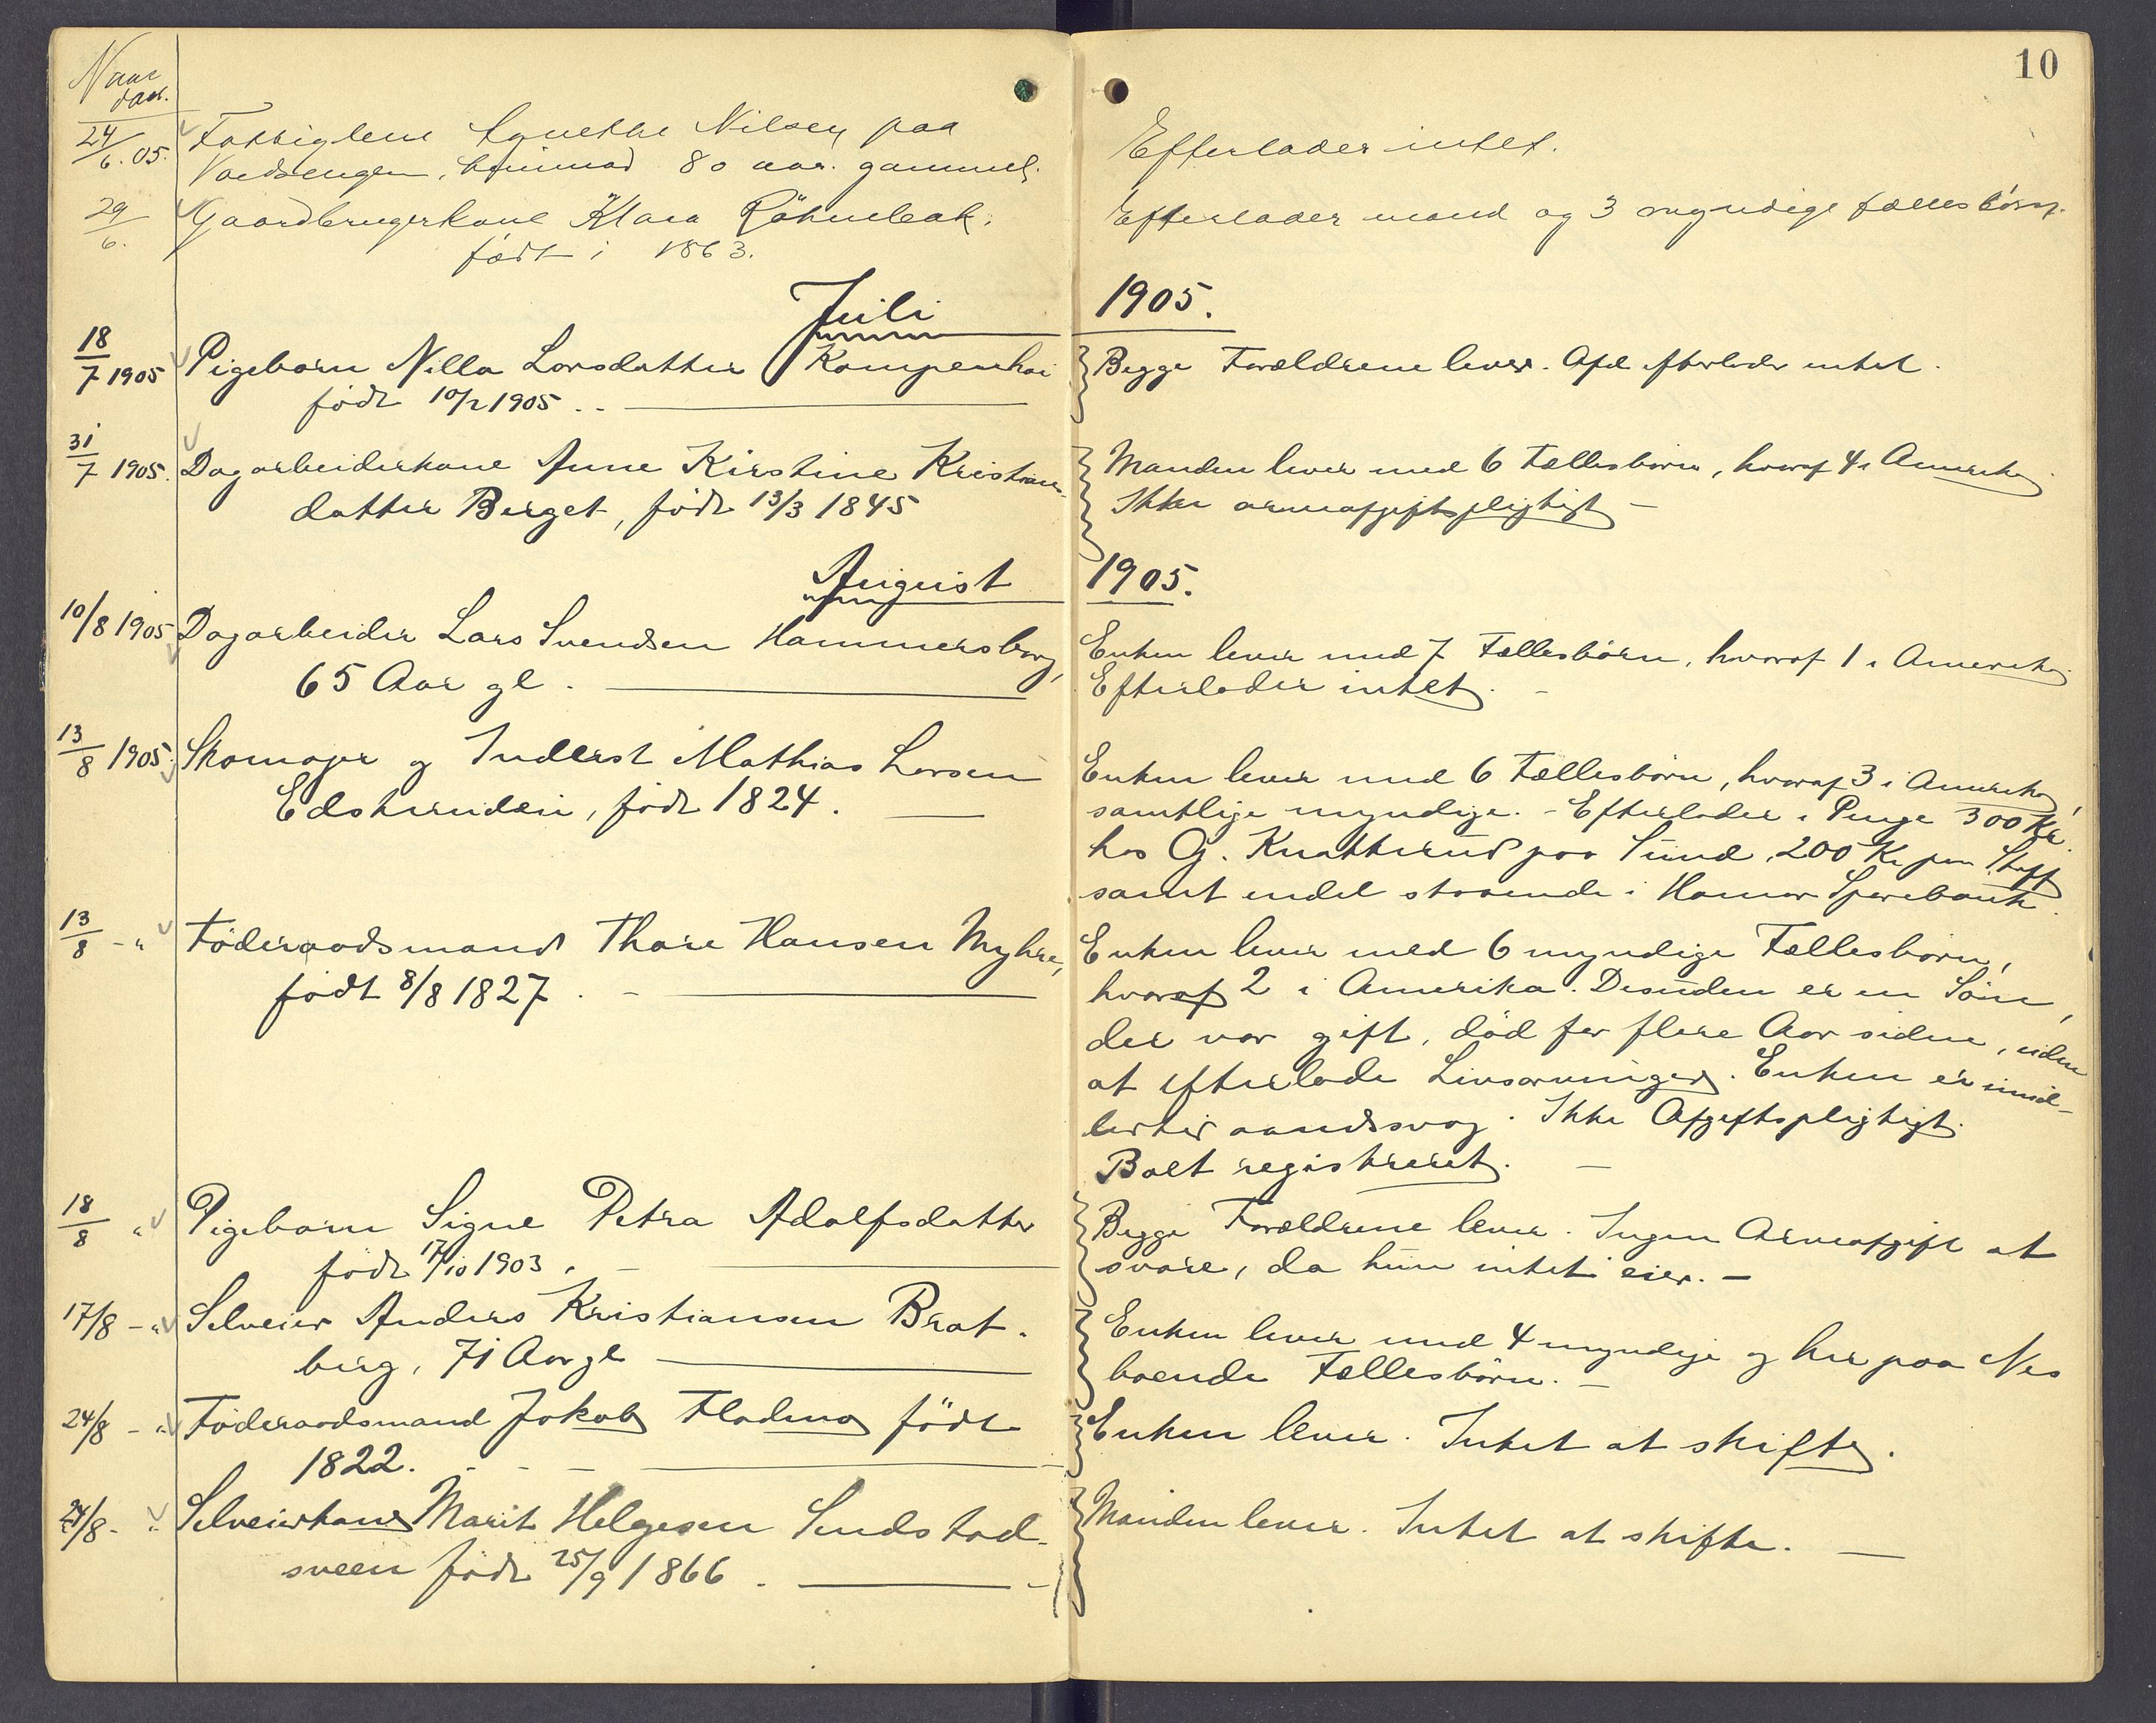 10
Naar
død.
24/6. 05. Fattiglem Agnethe Nilsen paa
Vardsengen, omtrent 80 aar. gammel.
Efterlader intet.
29/6. Gaardbrugerkone Klara
født i 1863.
Efterlader mand og 3 myndige fællesbørn.
Juli 1905.
18/7 1905 Pigebarn Nilla Larsdatter Kampenhai
født 10/2 1905
Begge Forældrene lever. Afd. efterlader intet.
31/7 1905. Dagarbeiderkone Anne Kirstine Kristians-
datter Berget, født 13/3 1845
Manden lever med 6 Fællesbørn, hvoraf 4 i Amerika.
Ikke arveafgiftspligtigt –
August 1905.
10/8 1905 Dagarbeider Lars Svendsen Hammersborg,
65 Aar gl.
Enken lever med 7 Fællesbørn, hvoraf 1 i Amerika.
Efterlader intet. –
13/8 1905. Skomager og Inderst Mathias Larsen
født 1824.
Enken lever med 6 Fællesbørn, hvoraf 3 i Amerika,
samtlige myndige. – Efterlader i Penge 300 Kr.
hos G. Knatterud paa Sund, 200 Kr paa
samt endel staaende i Hamar Sparebank.
13/8 - " Föderaadsmand Thore Hansen Myhre,
født 8/8 1827. –
Enken lever med 6 myndige Fællesbørn,
hvoraf 2 i Amerika. Desuden er en Søn,
der var gift, död for flere Aar siden, uden
at efterlade Livsarvinger. Enken er imid-
lertid aandssvag. Ikke Afgiftspligtigt.
Boet registreret. –
18/8 " Pigebarn Signe Petra Adolfsdatter
født 17/10 1903. –
Begge Forældrene lever. Ingen Arveafgift at
svare, da hun intet eier. –
17/8 - " Selveier Anders Kristiansen Brat-
berg, 71 Aar gl
Enken lever med 4 myndige og her paa Nes
boende Fællesbørn. –
24/8 - " Föderaadsmand Jakob Fladmo födt
1822. - - -
Enken lever. Intet at skifte.
24/8 - " Selveierkone Marit Helgesen Sundstad-
sveen födt 25/9 1866.
Manden lever. Intet at skifte. –